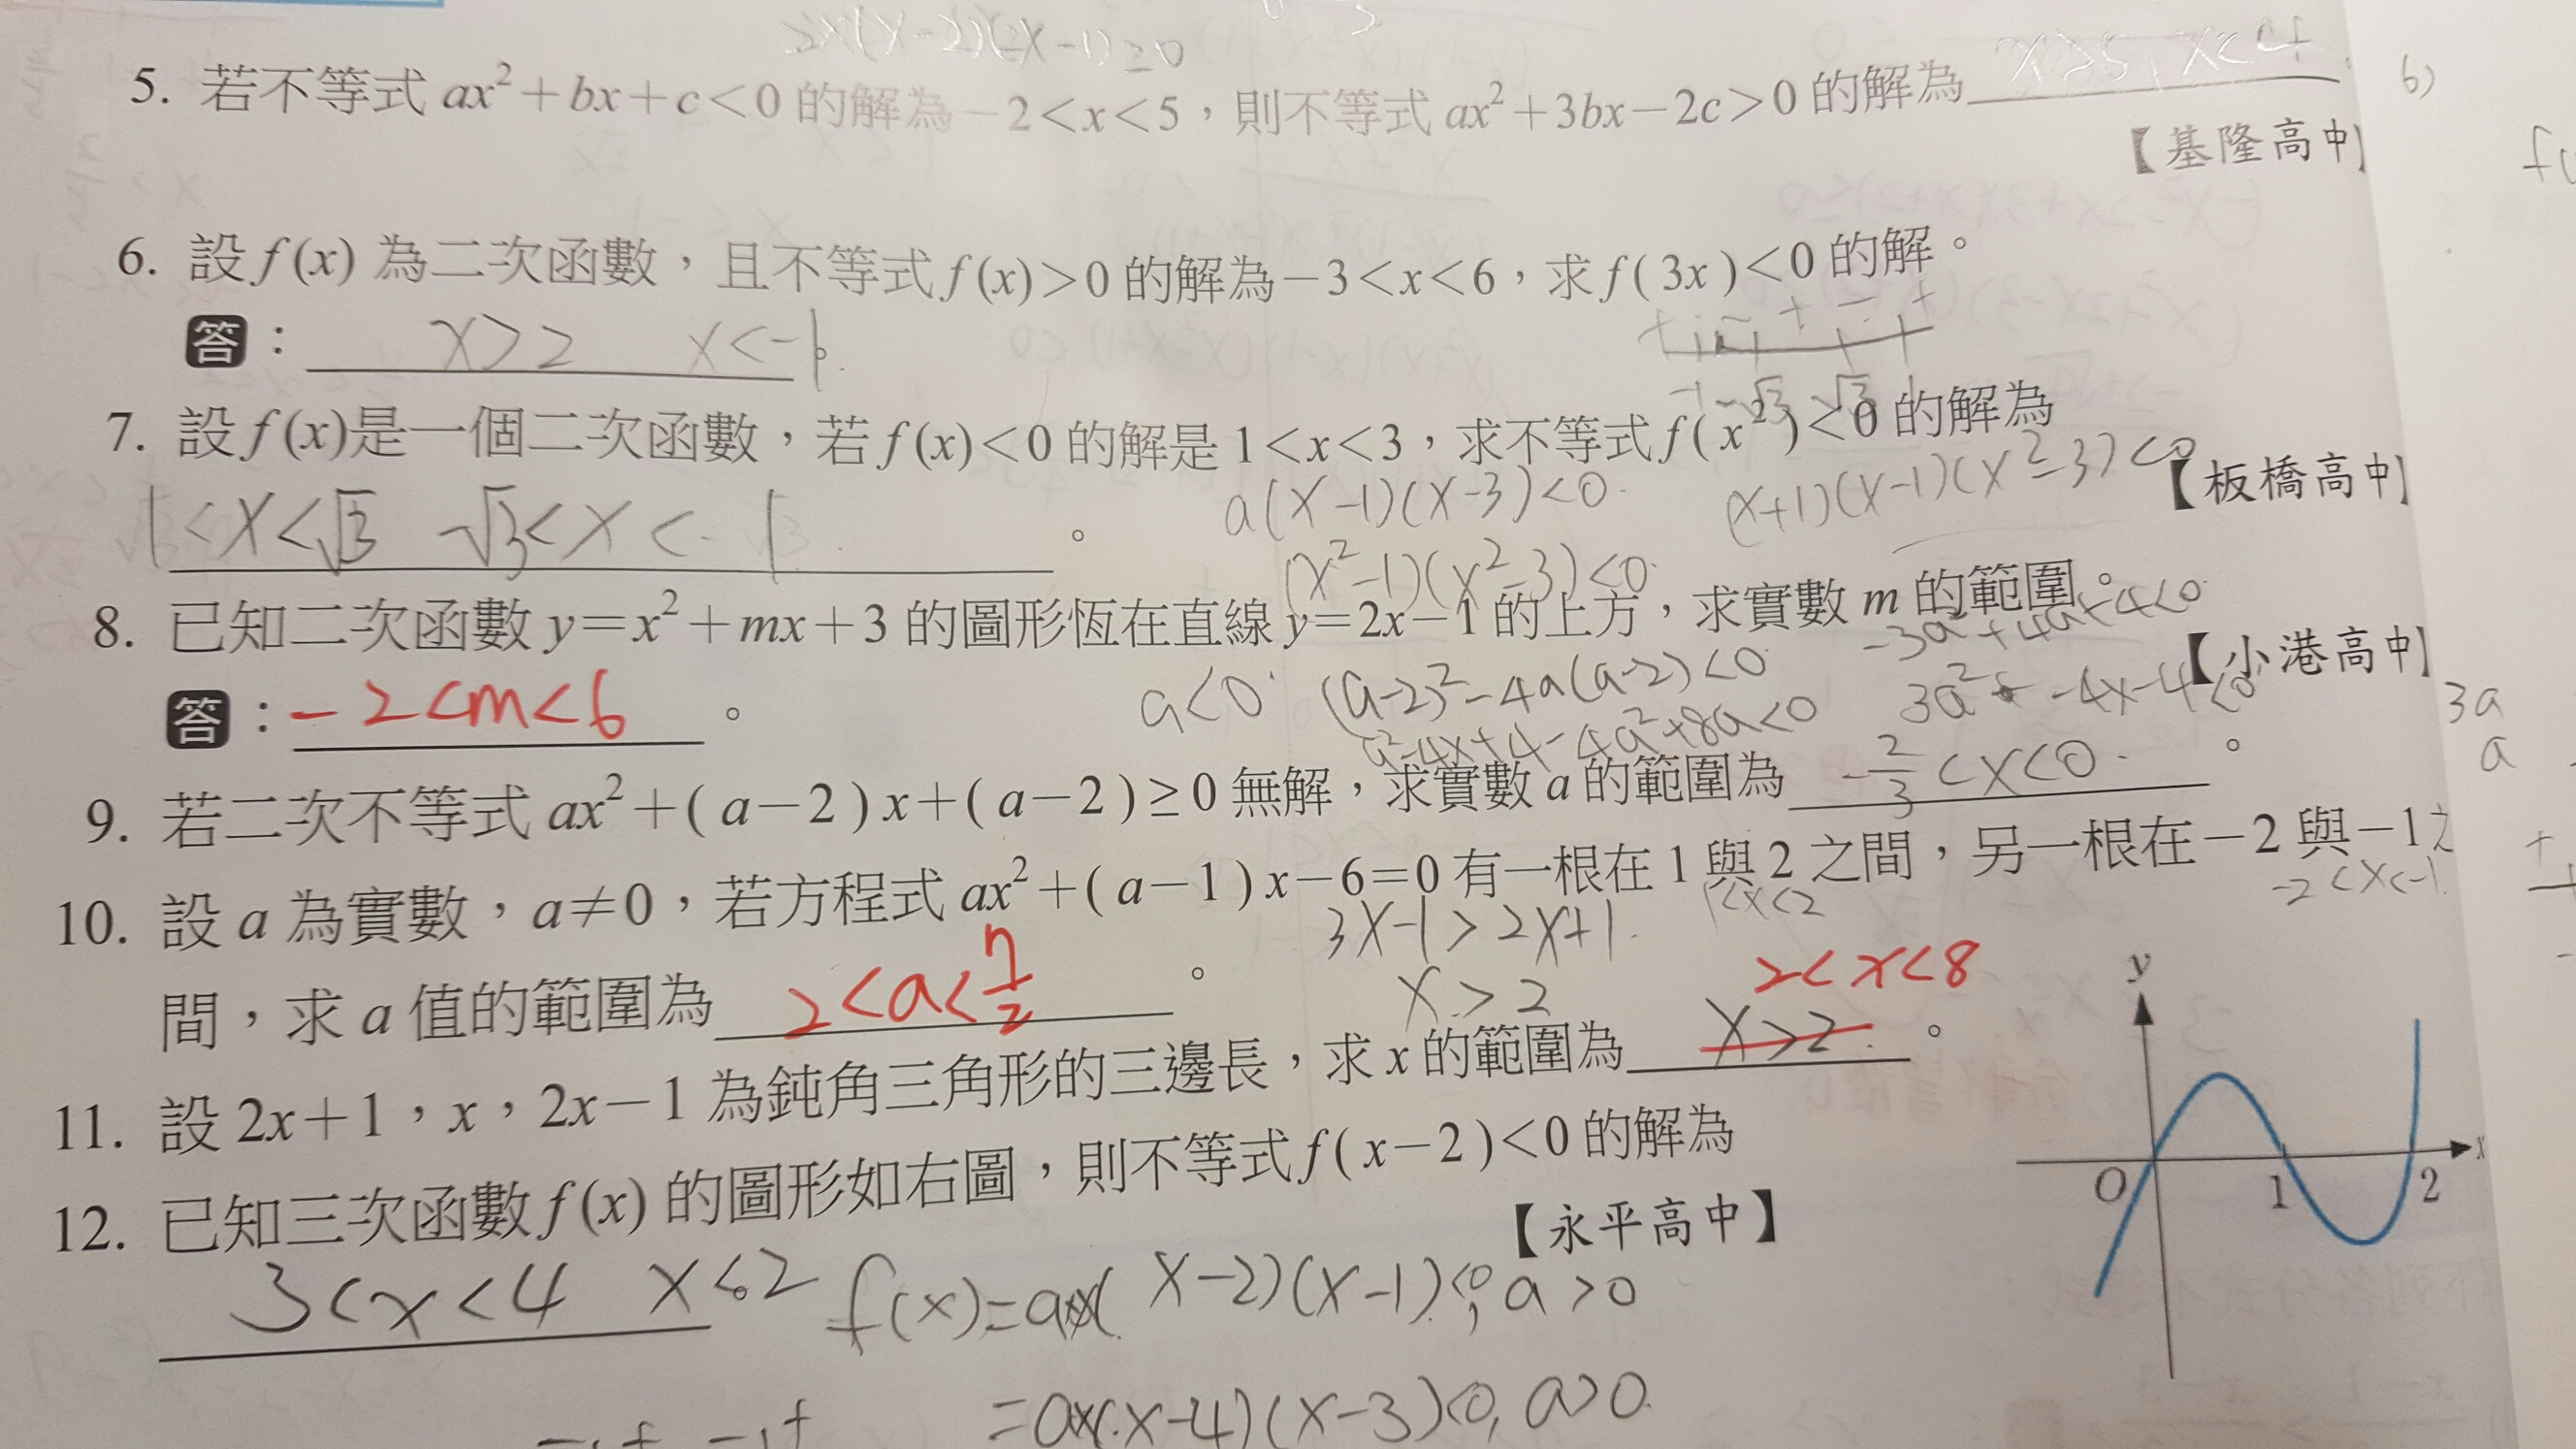 2x(x-2)(2x-1)≥0
5. 若不等式 ax²+bx+c<0 的解為-2<x<5，則不等式 ax²+3bx-2c>0 的解為 x>5, x<4
【基隆高中】
6. 設 f(x) 為二次函數，且不等式 f(x)>0 的解為-3<x<6，求 f(3x)<0 的解。
答： x>2 x<-1。
+ - + - +
-1 -√3 √3 1
7. 設 f(x)是一個二次函數，若 f(x)<0 的解是 1<x<3，求不等式 f(x²)<0 的解為
【板橋高中】
1<x<√3 -√3<x<-1 。
a(x-1)(x-3)<0
(x+1)(x-1)(x²-3)<0
(x²-1)(x²-3)<0
8. 已知二次函數 y=x²+mx+3 的圖形恆在直線 y=2x-1 的上方，求實數 m 的範圍。
【小港高中】
答：-2<m<6 。
a<0 (a-2)²-4a(a-2)<0
a²-4x+4-4a²+8a<0
-3a²+4a+4<0
3a² -4x-4<0
3a
a
9. 若二次不等式 ax²+(a-2)x+(a-2)≥0 無解，求實數 a 的範圍為 -2/3<x<0 。
10. 設 a 為實數，a≠0，若方程式 ax²+(a-1)x-6=0 有一根在 1 與 2 之間，另一根在-2 與-1之
1<x<2 -2<x<-1
間，求 a 值的範圍為 2<a<7/2 。
3x-1>2x+1
x>2
2<x<8
11. 設 2x+1，x，2x-1 為鈍角三角形的三邊長，求 x 的範圍為 x>2 。
12. 已知三次函數 f(x) 的圖形如右圖，則不等式 f(x-2)<0 的解為
【永平高中】
3<x<4 x<2 。
f(x)=ax(x-2)(x-1)<0, a>0
=ax(x-4)(x-3)<0, a>0
y
x
O 1 2
6)